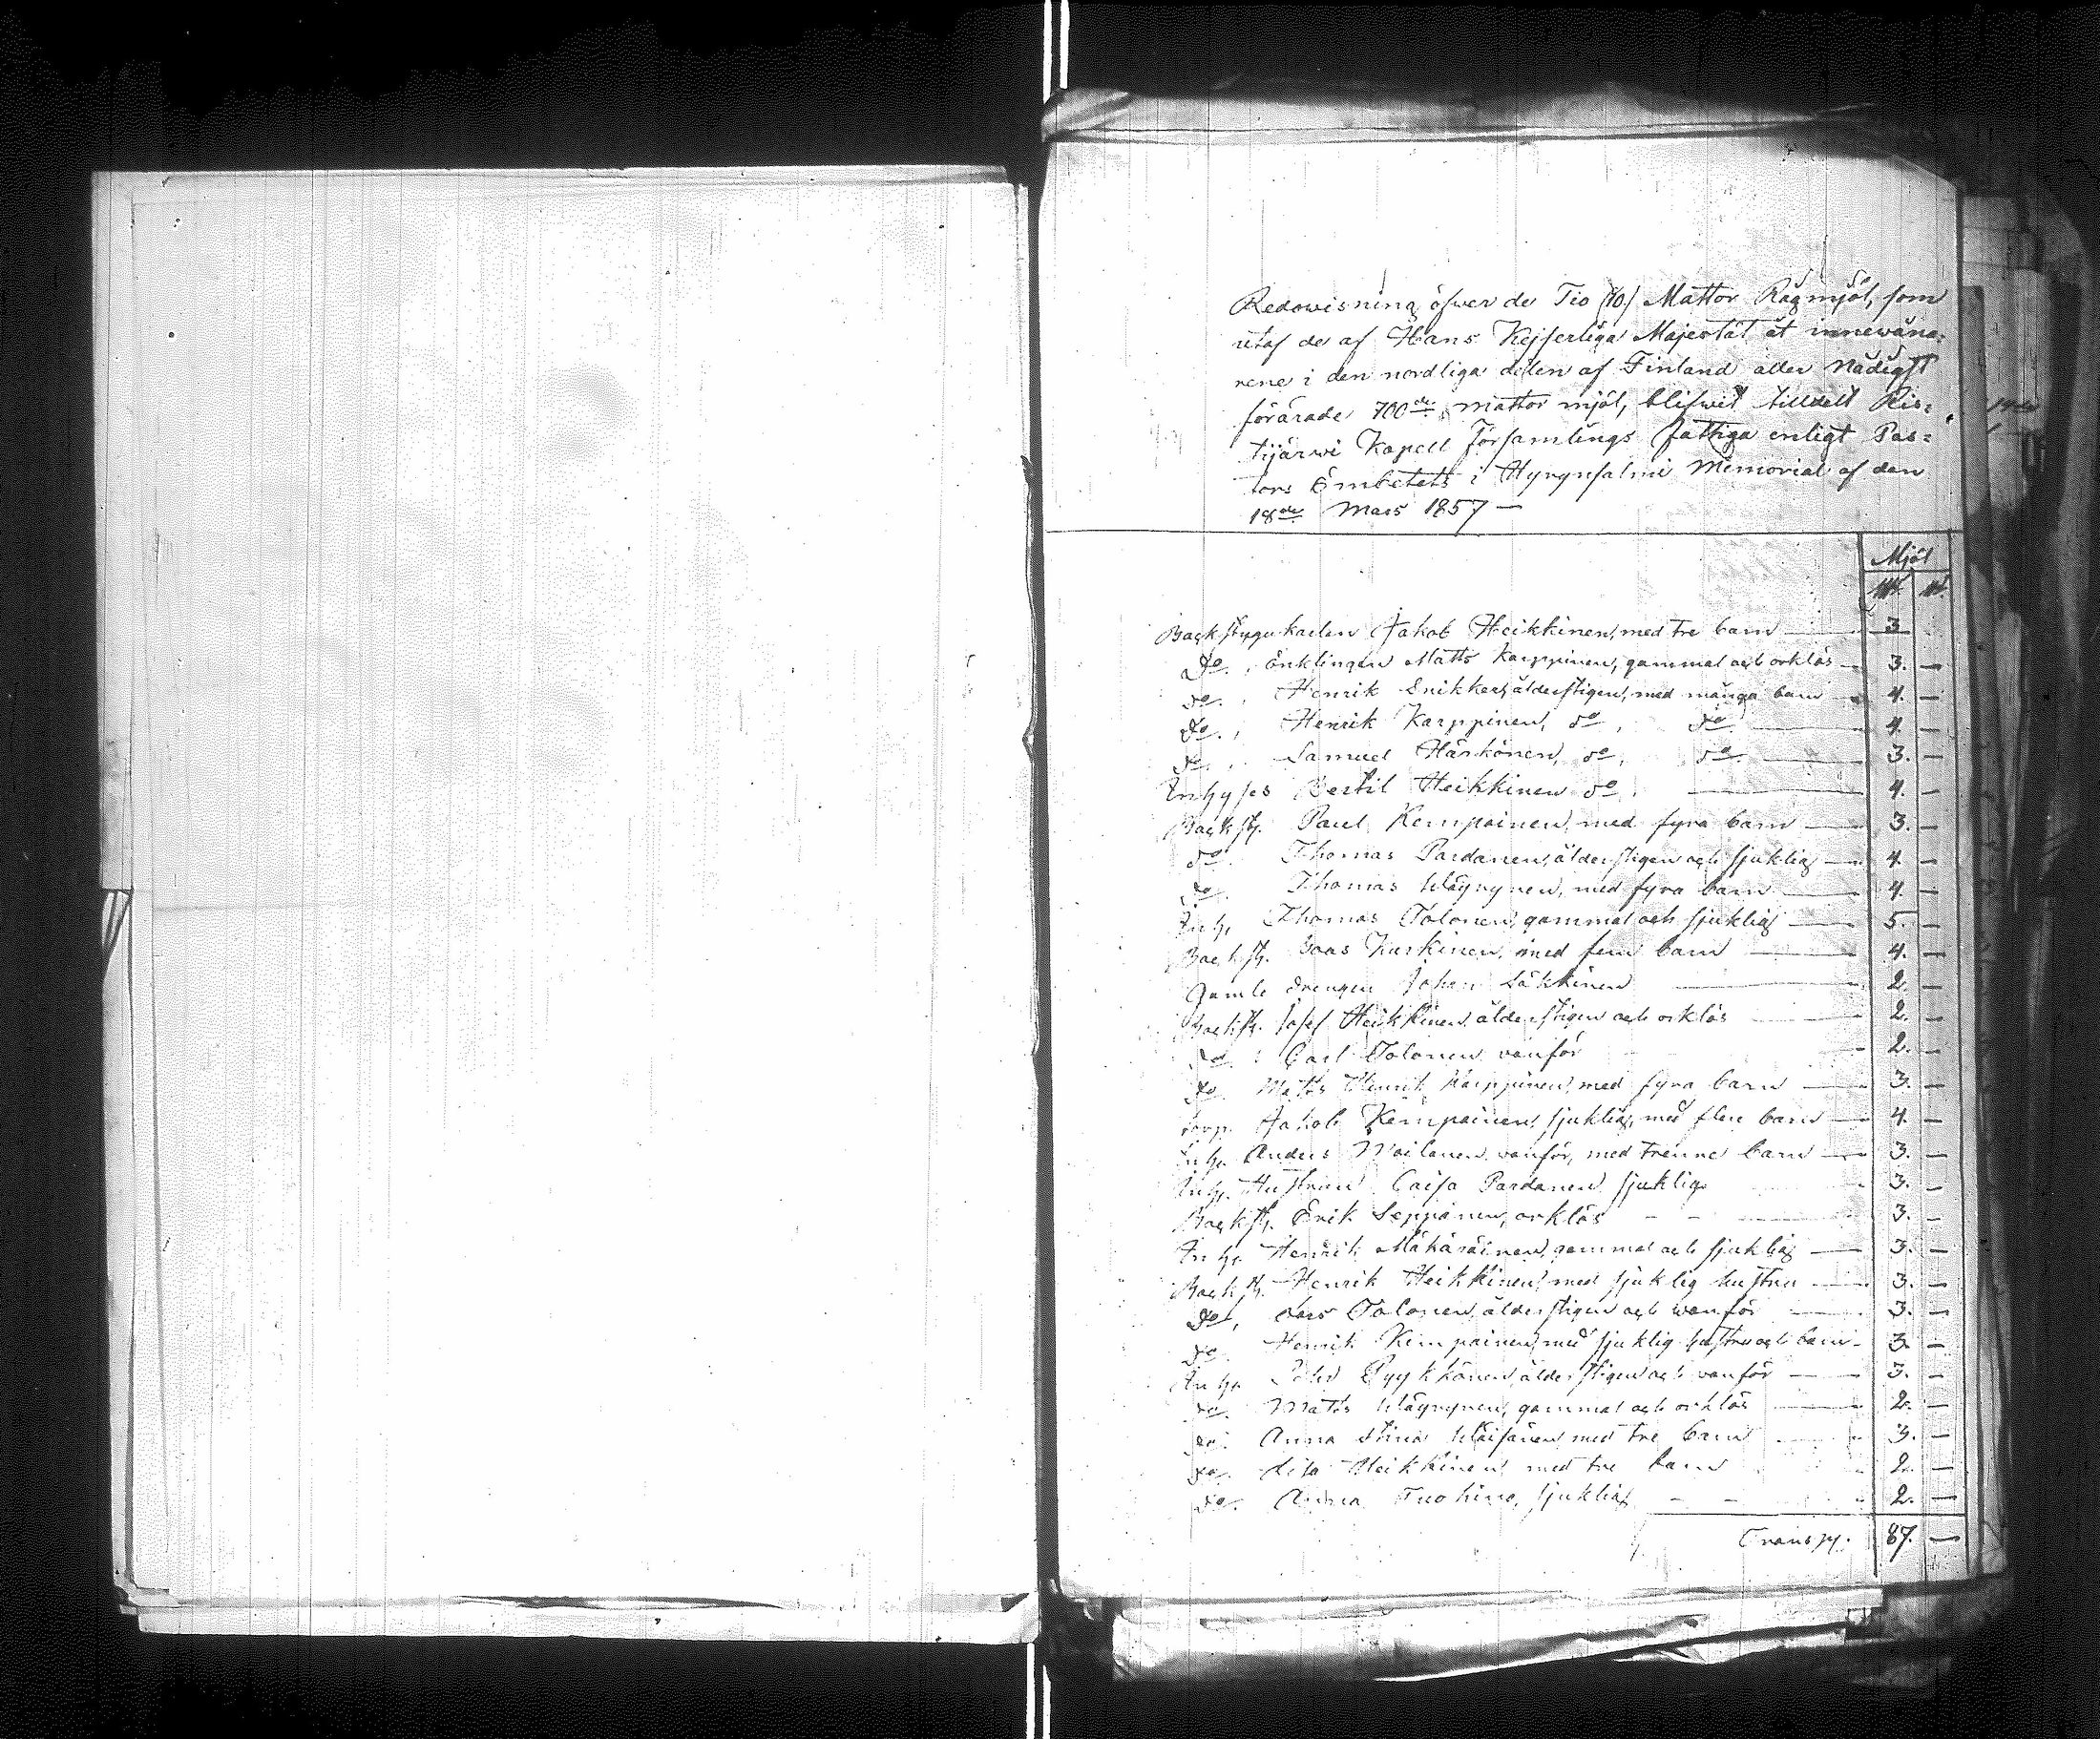 Redowisning öfwer de Tio (10) Mattor Rågmjöl, som
utaf de af Hans Kejserliga Majestät åt innewåna-
rene i den nordliga delen af Finland aller Nådigst
förärade 700de mattor mjöl, blifwit tilldelt Ris=
tijärwi Kapell Församlings fattiga enligt Pas=
tors Embetets i Hyrynsalmi Memorial af den
18de Mars 1857 —
Mjöl
Backstugukarlen Jakob Heikkinen, med tre barn — 3
Do. Enklingen Matts Karppinen, gammal och orklös — 3. —
do. Henrik Snikkers, ålderstigen, med många barn — 4. —
Do. Henrik Karppinen, do, do — 4. —
do. Samuel Härkönen, do, do — 3. —
Inhyses Bertil Heikkinen do. — 4. —
Backst. Paul Kempainen, med fyra barn — 3. —
do. Thomas Pardanen, ålderstigen och sjuklig — 4. —
do. Thomas Wäyrynen, med fyra barn — 4. —
Inh. Thomas Tolonen, gammal och sjuklig — 5. —
Backst. Kurkinen, med fem barn — 4. —
Gamle drengen Johan Säkkinen — 2. —
Backst. Josef Heikkinen ålderstigen och orklös — 2. —
do. Carl Tolonen vanför — 2. —
do. Matts Henrik Karppinen, med fyra barn — 3. —
Torp. Jakob Kempainen, sjuklig, med flere barn — 4. —
Inh. Anders Moilanen vanför, med trenne barn — 3. —
Inh. Hustrun Caisa Pardanen sjuklig — 3. —
Backst. Erik Seppänen, orklös — 3. —
Inh. Henrik Mäkäräinen, gammal och sjuklig — 3. —
Backst. Henrik Heikkinen, med sjuklig hustru — 3. —
Do, Lars Tolonen, ålderstigen och wanför — 3. —
do. Henrik Kempainen, med sjuklig hustru och barn — 3. —
Inh. Petter Pyykkönen, ålderstigen och vanför — 3. —
do. Matts Wäyrynen, gammal och orklös — 2. —
do. Anna Stina Wäisänen med tre barn — 3. —
do. Lisa Heikkinen, med tre barn — 2. —
do. Anna Tuohino, sjuklig — 2. —
Transp. 87. —